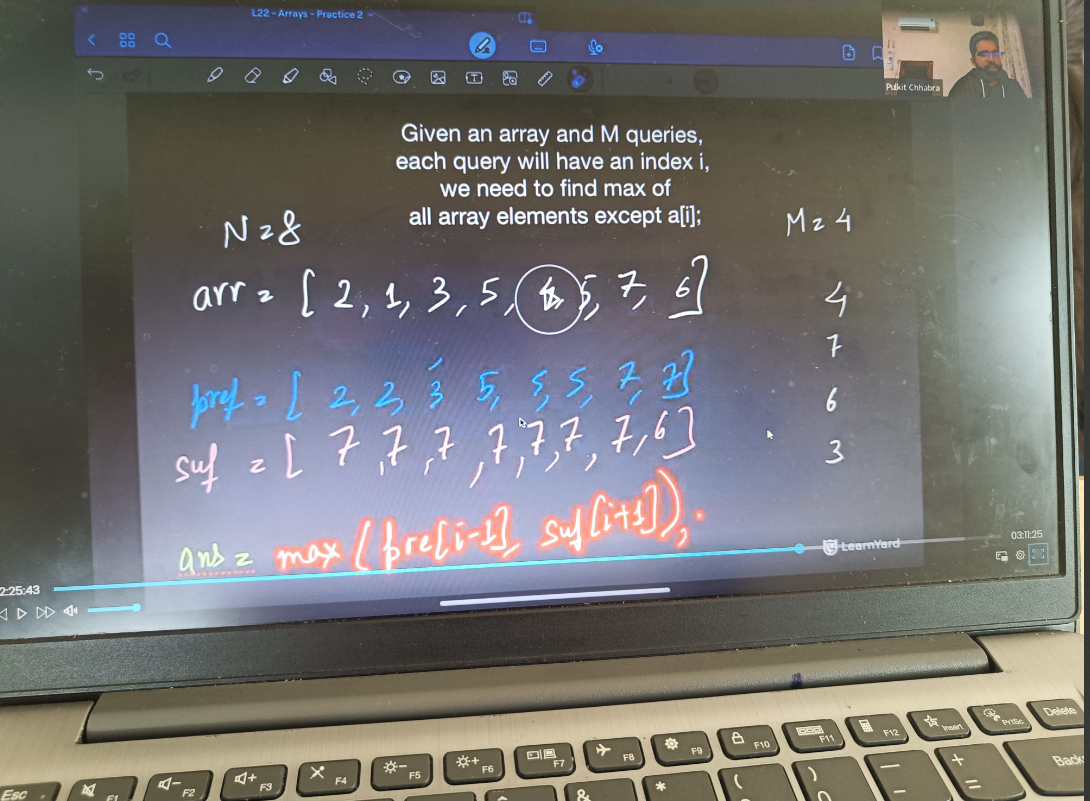 L22 - Arrays - Practice 2
Pulkit Chhabra
Given an array and M queries,
each query will have an index i,
we need to find max of
all array elements except a[i];
N=8
M=4
arr = [ 2, 1, 3, 5, 5, 7, 6]
4
7
6
3
pref = [ 2, 2, 3 5, 5, 5, 7, 7]
suf = [ 7, 7, 7, 7, 7, 7, 7, 6]
ans = max (pre[i-1], suf[i+1]);
LearnYard
03:11:25
2:25:43
Esc F1 F2 F3 F4 F5 F6 F7 F8 F9 F10 F11 F12 Insert PrtSc Delete
* & ( ) _ - + = Back